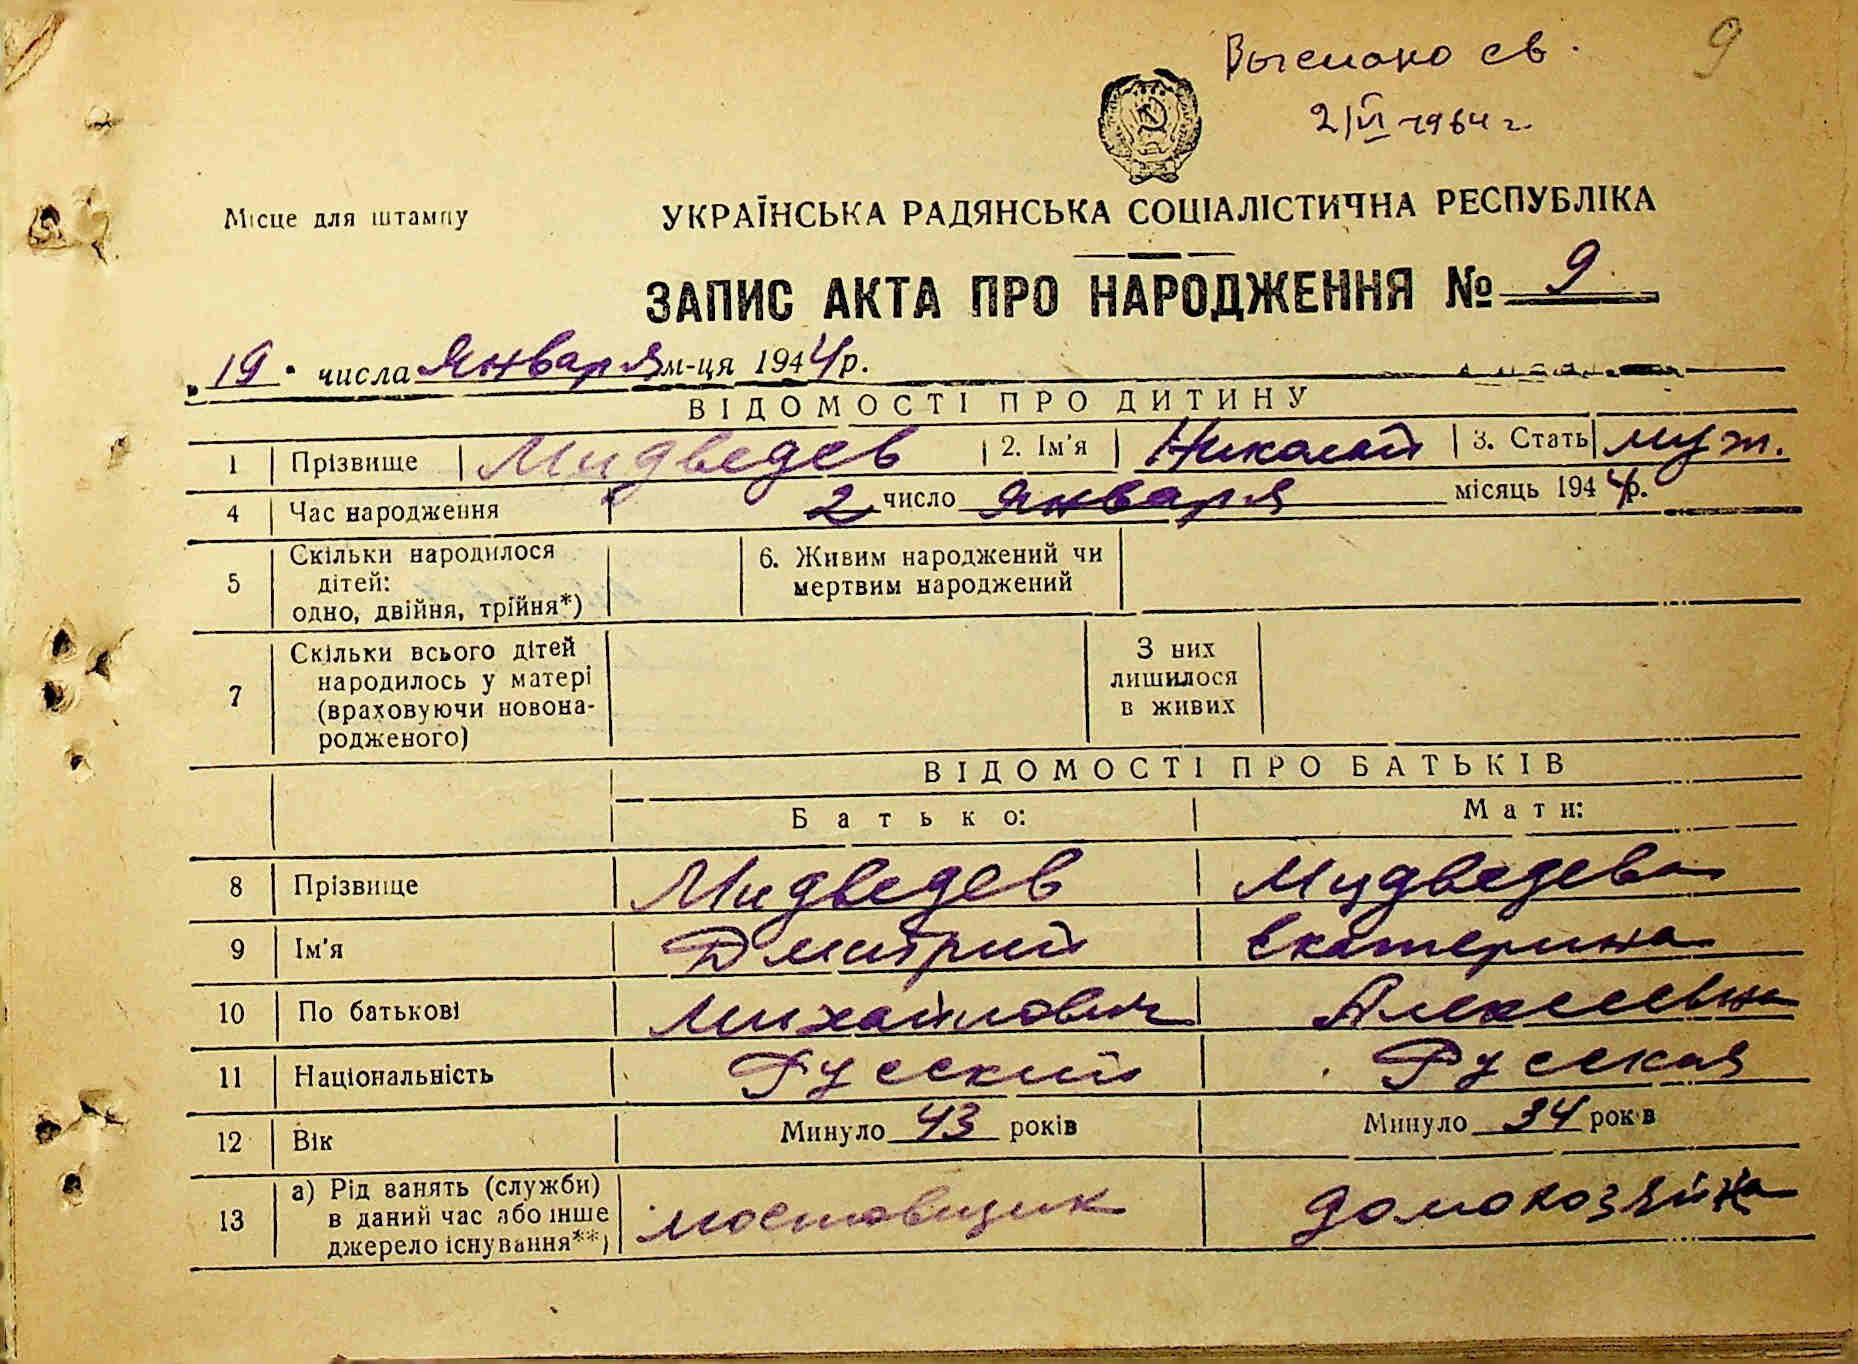 9
Выслано св.
2/VI 1964 г.
Місце для штампу
УКРАЇНСЬКА РАДЯНСЬКА СОЦІАЛІСТИЧНА РЕСПУБЛІКА
ЗАПИС АКТА ПРО НАРОДЖЕННЯ № 9
„19" числа Января м-ця 1944 р.
ВІДОМОСТІ ПРО ДИТИНУ
1 Прізвище Мидведев 2. Ім'я Николай 3. Стать муж.
4 Час народження 2 число Января місяць 1944 р.
5 Скільки народилося дітей: одно, двійня, трійня*) 6. Живим народжений чи мертвим народжений
7 Скільки всього дітей народилось у матері (враховуючи новонародженого) З них лишилося в живих
ВІДОМОСТІ ПРО БАТЬКІВ
Батько: Мати:
8 Прізвище Мидведев Мидведева
9 Ім'я Дмитрий Екатерина
10 По батькові Михайлович Алексеевна
11 Національність Русский Русская
12 Вік Минуло 43 років Минуло 34 років
13 а) Рід занять (служби) в даний час або інше джерело існування**) мостовщик домохозяйка